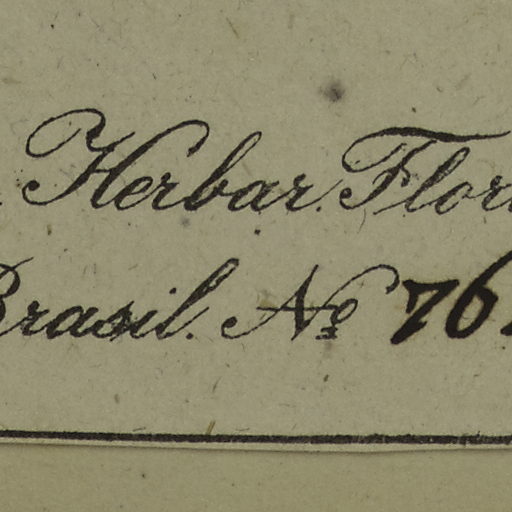 Herbar. Flor
Brasil. No 76